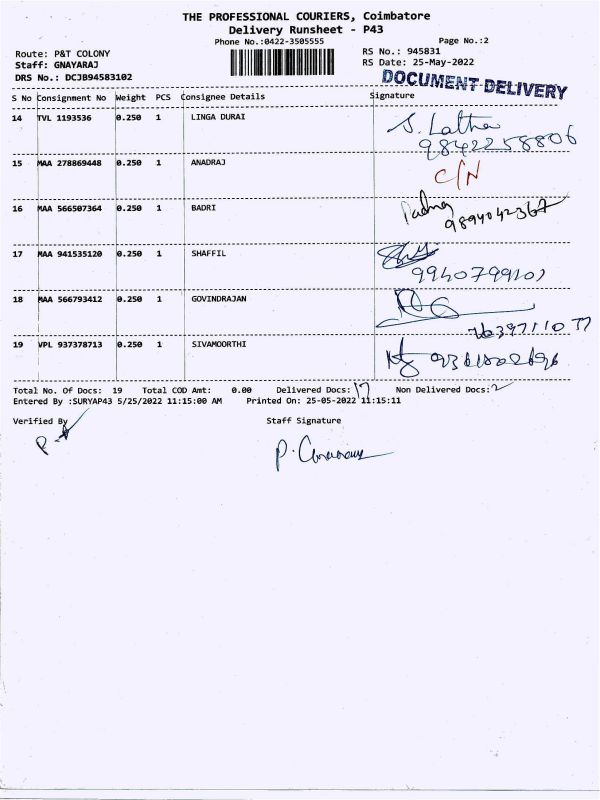 THE PROFESSIONAL COURIERS, Coimbatore
Delivery Runsheet - P43
Phone No.:0422-3505555
Page No.:2
Route: P&T COLONY
RS No.: 945831
Staff: GNAYARAJ
RS Date: 25-May-2022
DRS No.: DCJB94583102
DOCUMENT DELIVERY
S No Consignment No Weight PCS Consignee Details Signature
14 TVL 1193536 0.250 1 LINGA DURAI S. Latha
9842258806
15 MAA 278869448 0.250 1 ANADRAJ C/N
16 MAA 566507364 0.250 1 BADRI Padma
9894042367
17 MAA 941535120 0.250 1 SHAFFIL
9940799101
18 MAA 566793412 0.250 1 GOVINDRAJAN
7639711077
19 VPL 937378713 0.250 1 SIVAMOORTHI
Total No. Of Docs: 19 Total COD Amt: 0.00 Delivered Docs: 17 Non Delivered Docs: 2
Entered By :SURYAP43 5/25/2022 11:15:00 AM Printed On: 25-05-2022 11:15:11
Verified By
Staff Signature